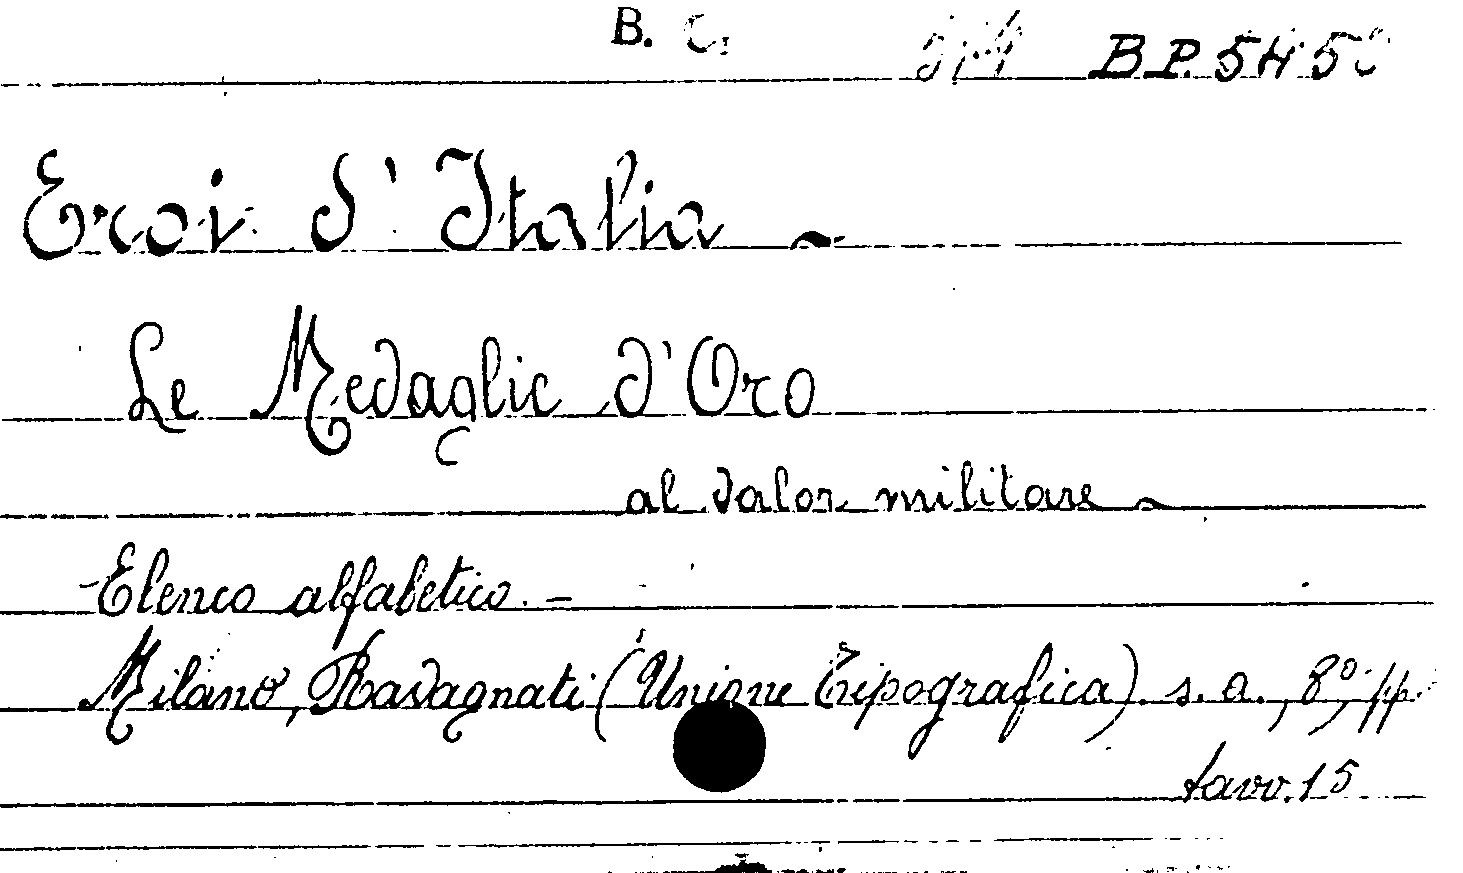 B. C.
B.P. 5H 5
Eroi d'Italia -
Le Medaglie d'Oro
al valor militare -
- Elenco alfabetico. -
Milano, Ravagnati (Unione Tipografica). s. a., 8°, pp.
tavv. 15